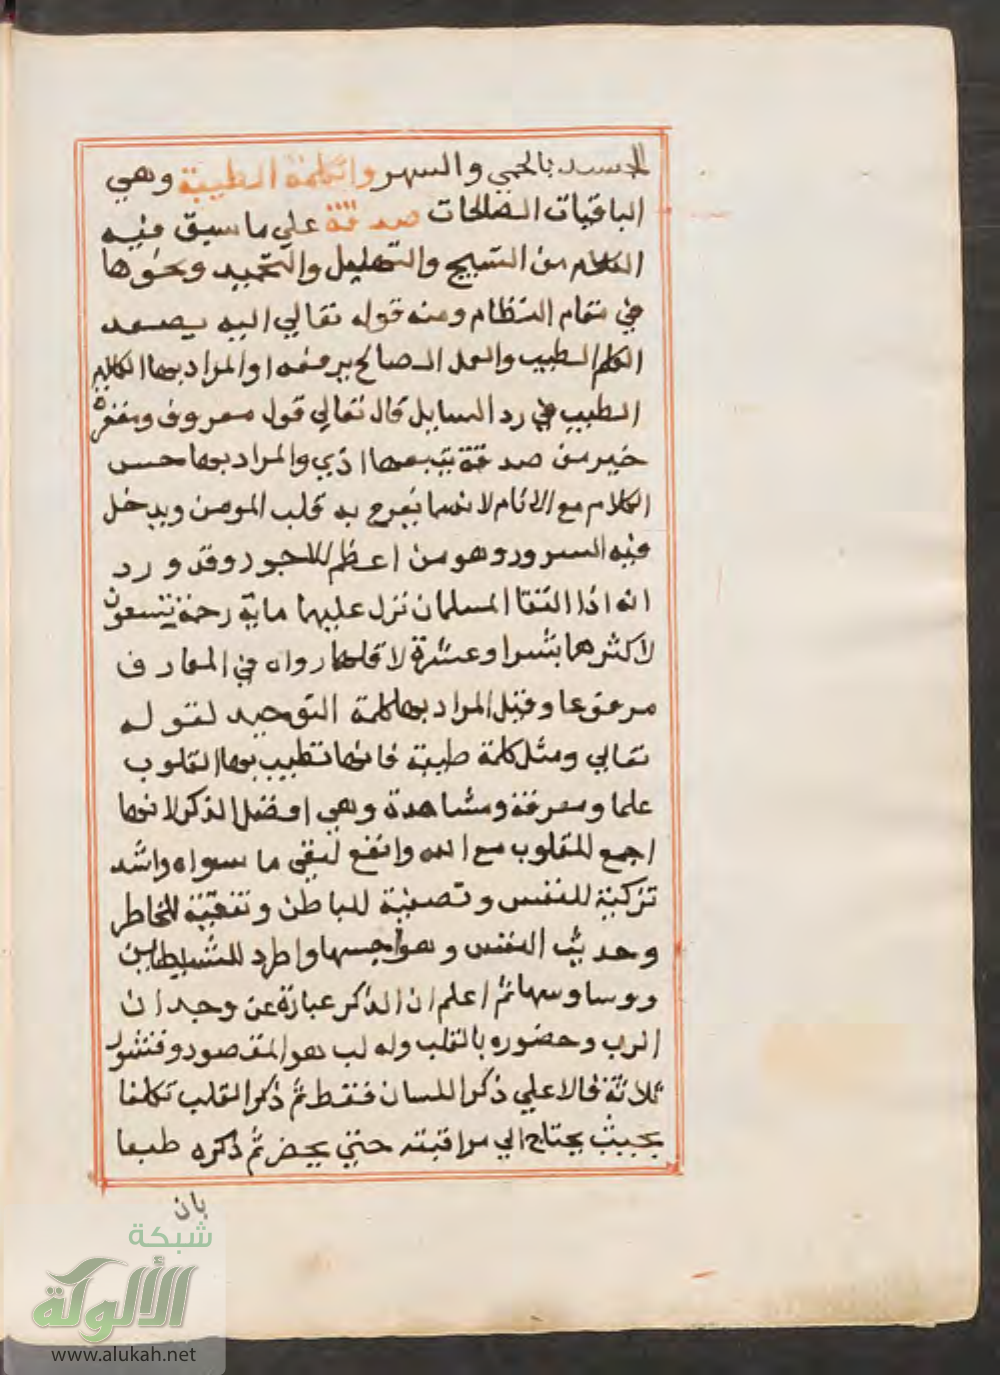 الجسد بالحمي والسهر والكلمة الطيبة وهي
الباقيات الصالحات صدقة علي ما سيق فيه
الكلام من التسبيح والتهليل والتحميد ونحوها
في مقام النظام ومنه قوله تعالي اليه يصعد
الكلم الطيب والعمل الصالح يرفعه او المراد بها الكلام
الطيب في رد السايل قال تعالي قول معروف ومغفرة
خير من صدقة يتبعها اذي والمراد بها حسن
الكلام مع الانام لانها يفرح به قلب المومن ويدخل
فيه السرور وهو من اعظم الاجور وقد ورد
انه اذا التقا المسلمان نزل عليهما ماية رحمة تسعون
لاكثرهما بشرا وعشرة لاقلهما رواه في المعارف
مرفوعا وقيل المراد بها كلمة التوحيد لقوله
تعالي ومثل كلمة طيبة فانها تطيب بها القلوب
علما ومعرفة ومشاهدة وهي افضل الذكر لانها
اجمع للقلوب مع الله وانفع لنفي ما سواه واشد
تزكية للنفس وتصفية للباطن وتنقية للخاطر
وحديث النفس وهواجسها واطرد للشيطاين
ووساوسها ثم اعلم ان الذكر عبارة عن وجدان
الرب وحضوره بالقلب وله لب هو المقصود وقشور
ثلاثة فالاعلي ذكر اللسان فقط ثم ذكر القلب تكلفا
بحيث يحتاج الي مراقبته حتي يحضر ثم ذكره طبعا
بان
شبكة
الألوكة
www.alukah.net